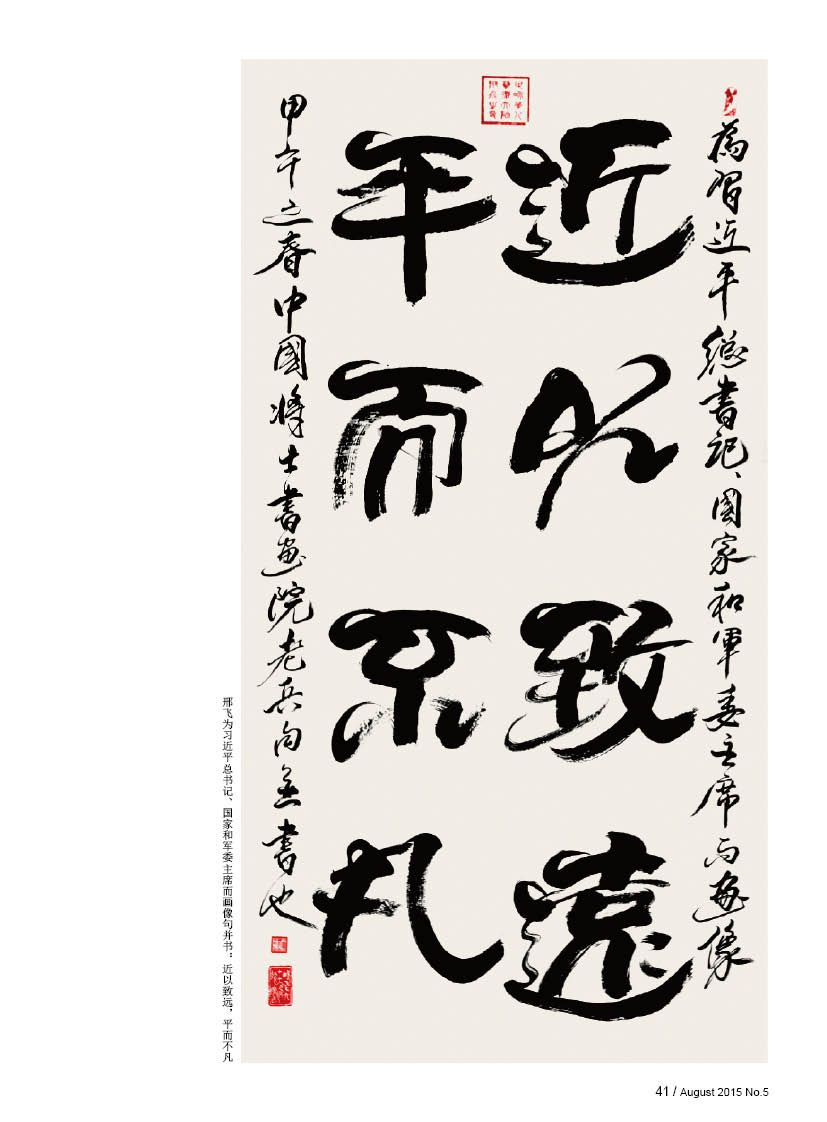 為習近平總書記、國家和軍委主席而畫像
近以致遠
平而不凡
甲午之春中國將士書畫院老兵句並書也
邢飞为习近平总书记、国家和军委主席而画像句并书:近以致远,平而不凡
41 / August 2015 No.5